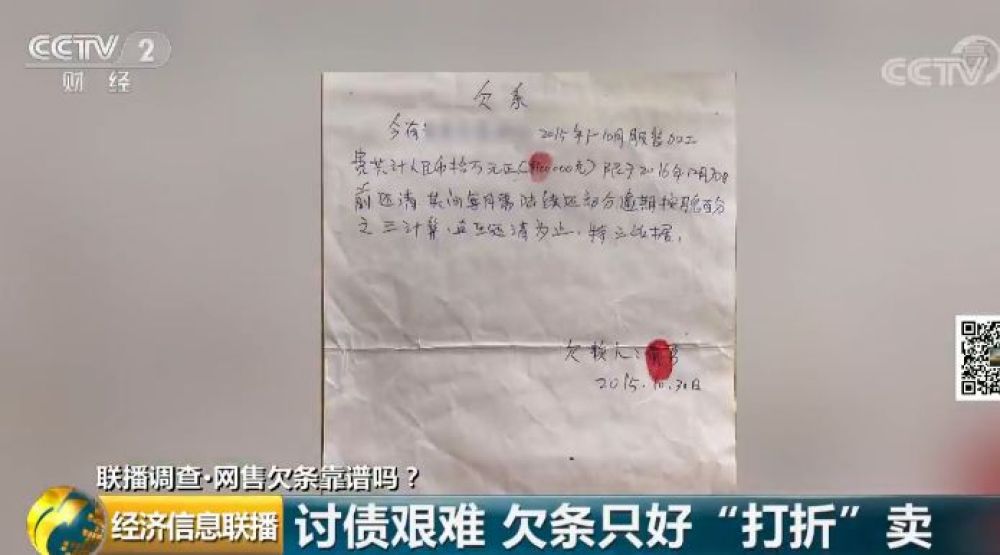 CCTV 2
财经
CCTV
欠条
今有 2015年5-10月服装加工
费共计人民币拾万元正(¥100000元)限于2016年12月30日
前还清 其间每月需陆续还部分逾期按月息百分
之三计算,直至还清为止,特立此据。
欠款人:
2015.10.30日
联播调查·网售欠条靠谱吗?
经济信息联播
讨债艰难 欠条只好“打折”卖